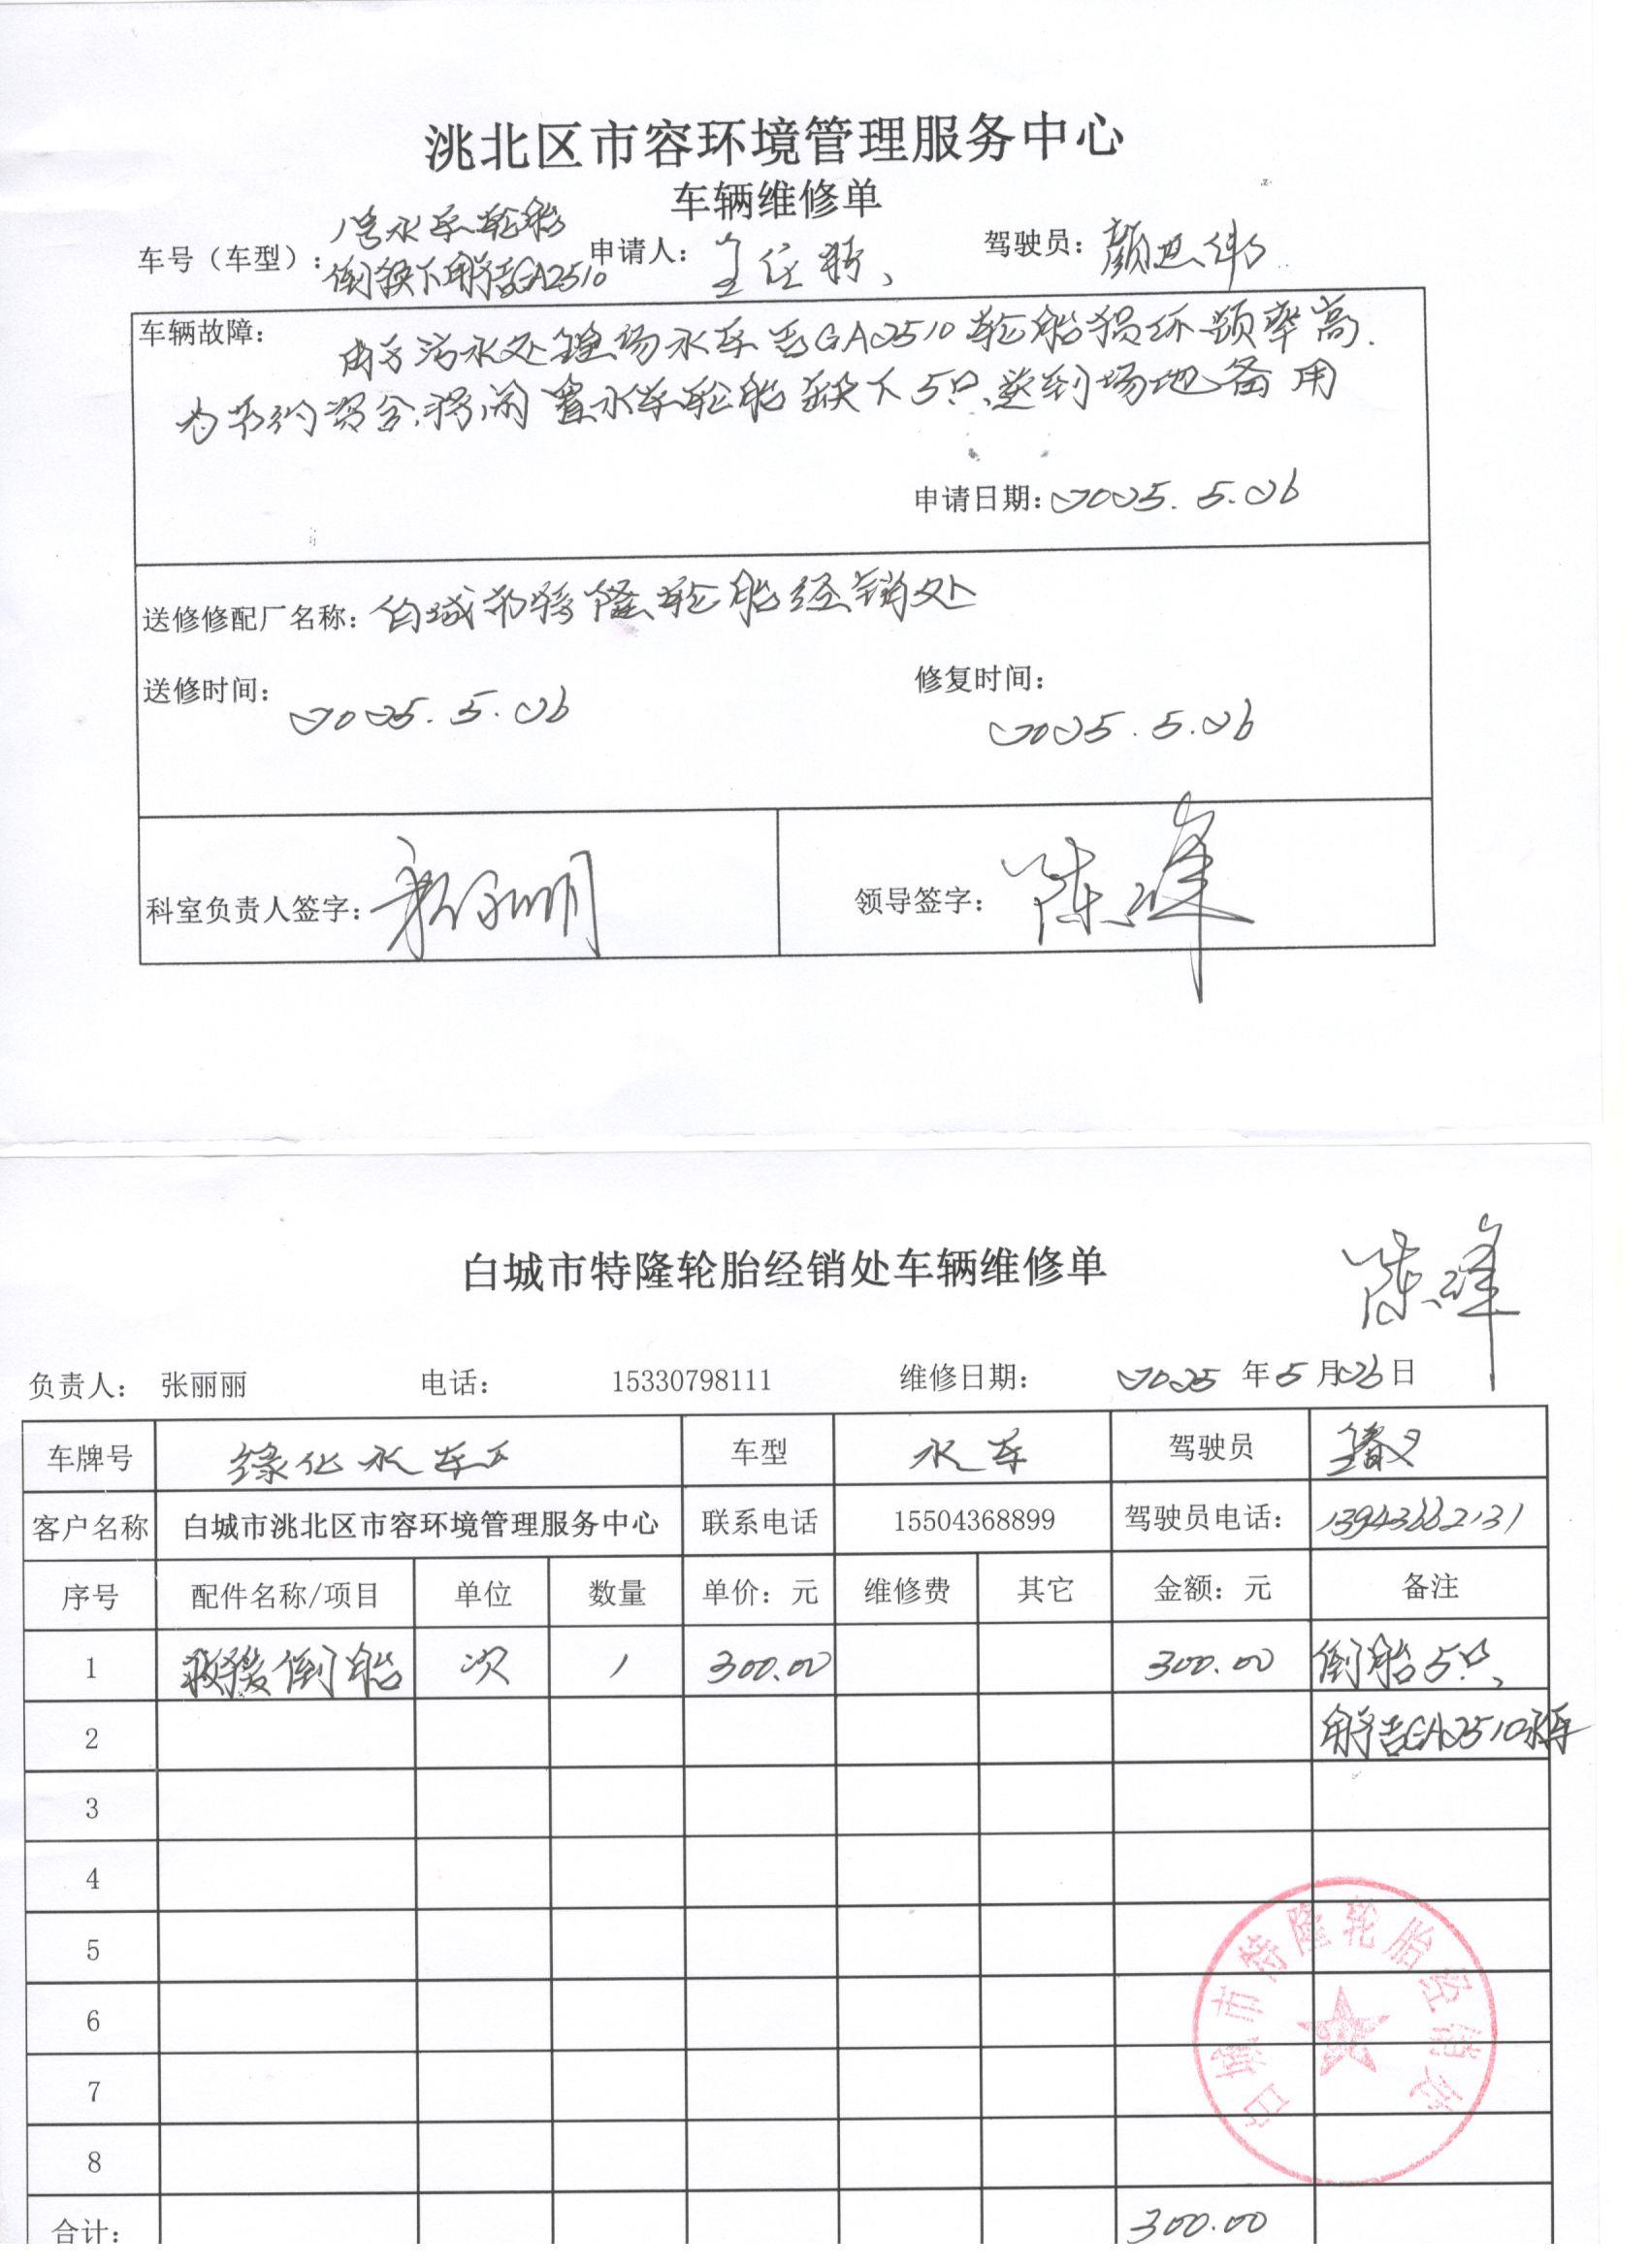 洮北区市容环境管理服务中心
车辆维修单
车号（车型）：
1号水车轮胎
倒换下用于吉GA2510
申请人：
驾驶员：颜思伟
车辆故障：
由于污水处理场水车吉GA2510轮胎损坏频率高.
为节约资金,将闲置水车轮胎换下5只,送到场地备用
申请日期：2025.5.26
送修修配厂名称：白城市特隆轮胎经销处
送修时间：2025.5.26
修复时间：2025.5.26
科室负责人签字：
领导签字：陈峰
陈峰
白城市特隆轮胎经销处车辆维修单
负责人： 张丽丽 电话： 15330798111 维修日期： 2025 年 5 月 26 日
车牌号 绿化水车 车型 水车 驾驶员
客户名称 白城市洮北区市容环境管理服务中心 联系电话 15504368899 驾驶员电话： 13943662131
序号 配件名称/项目 单位 数量 单价：元 维修费 其它 金额：元 备注
1 救援倒胎 次 1 300.00 300.00 倒胎5只、
2 用于吉GA2510水车
3
4
5
6
7
8
合计： 300.00
白城市特隆轮胎经销处